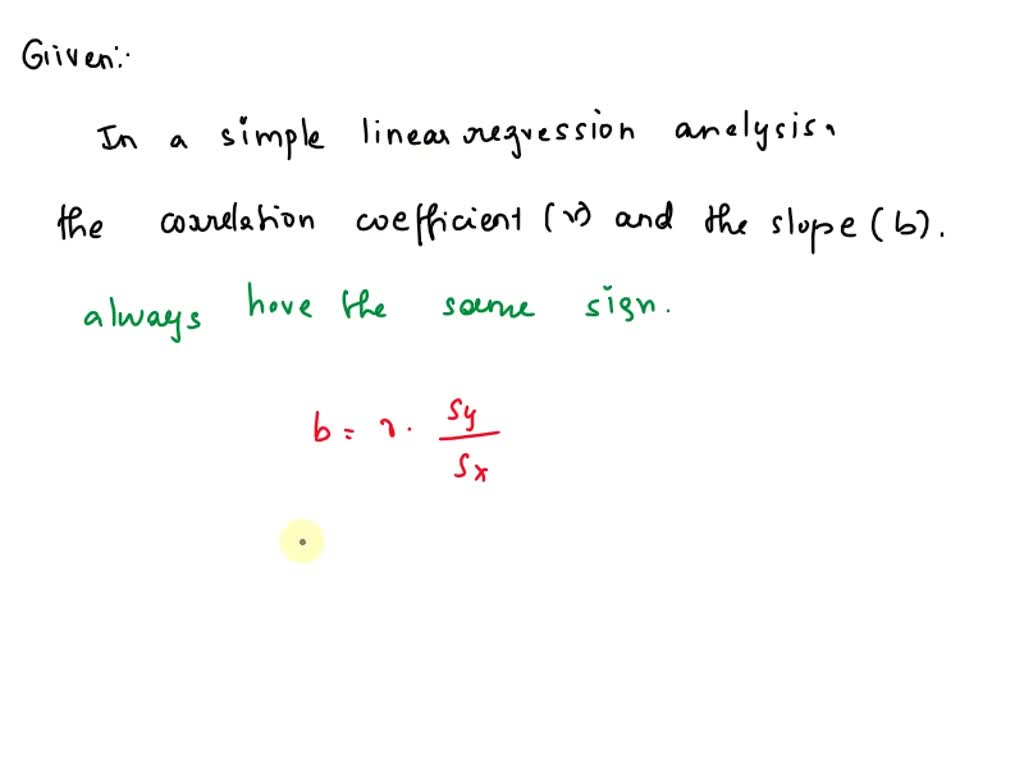 Given:
In a simple linear regression analysis,
the correlation coefficient (r) and the slope (b).
always have the same sign.
b = r. Sy
Sx